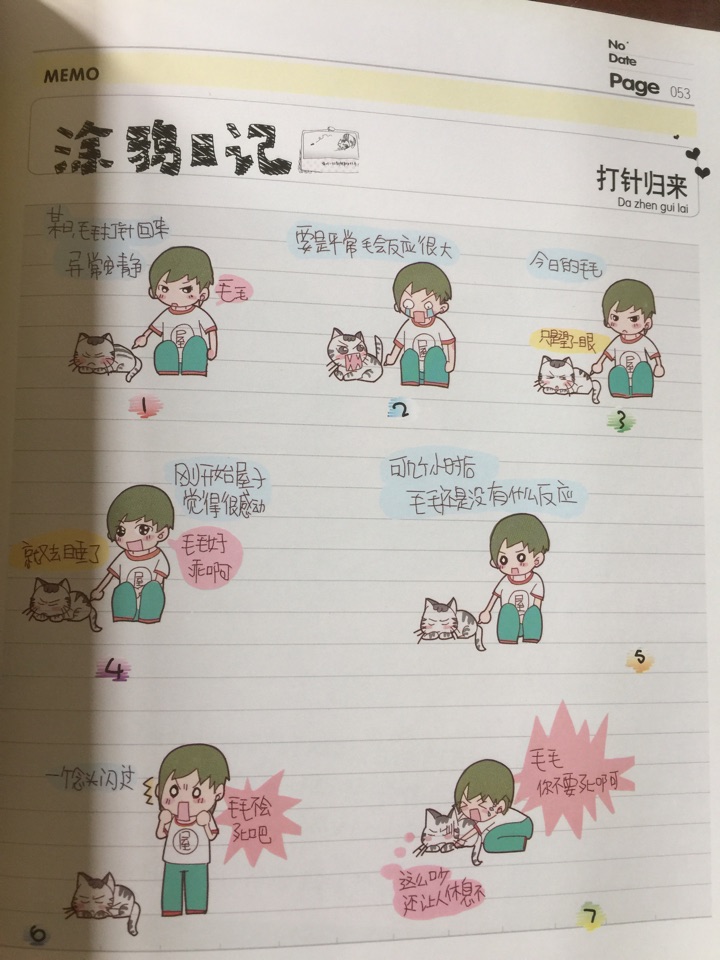 No
Date
MEMO
Page 053
涂鸦日记
打针归来
Da zhen gui lai
某日,毛毛打针回来
异常安静
毛毛
1
要是平常毛会反应很大
2
今日的毛毛
只望了一眼
3
刚开始屋子
觉得很感动
就又去睡了
毛毛好
乖啊
屋
4
可几个小时后
毛毛还是没有什么反应
屋
5
一个念头闪过
毛毛不会
死吧
屋
6
毛毛
你不要死啊
这么吵
还让人休息不
7